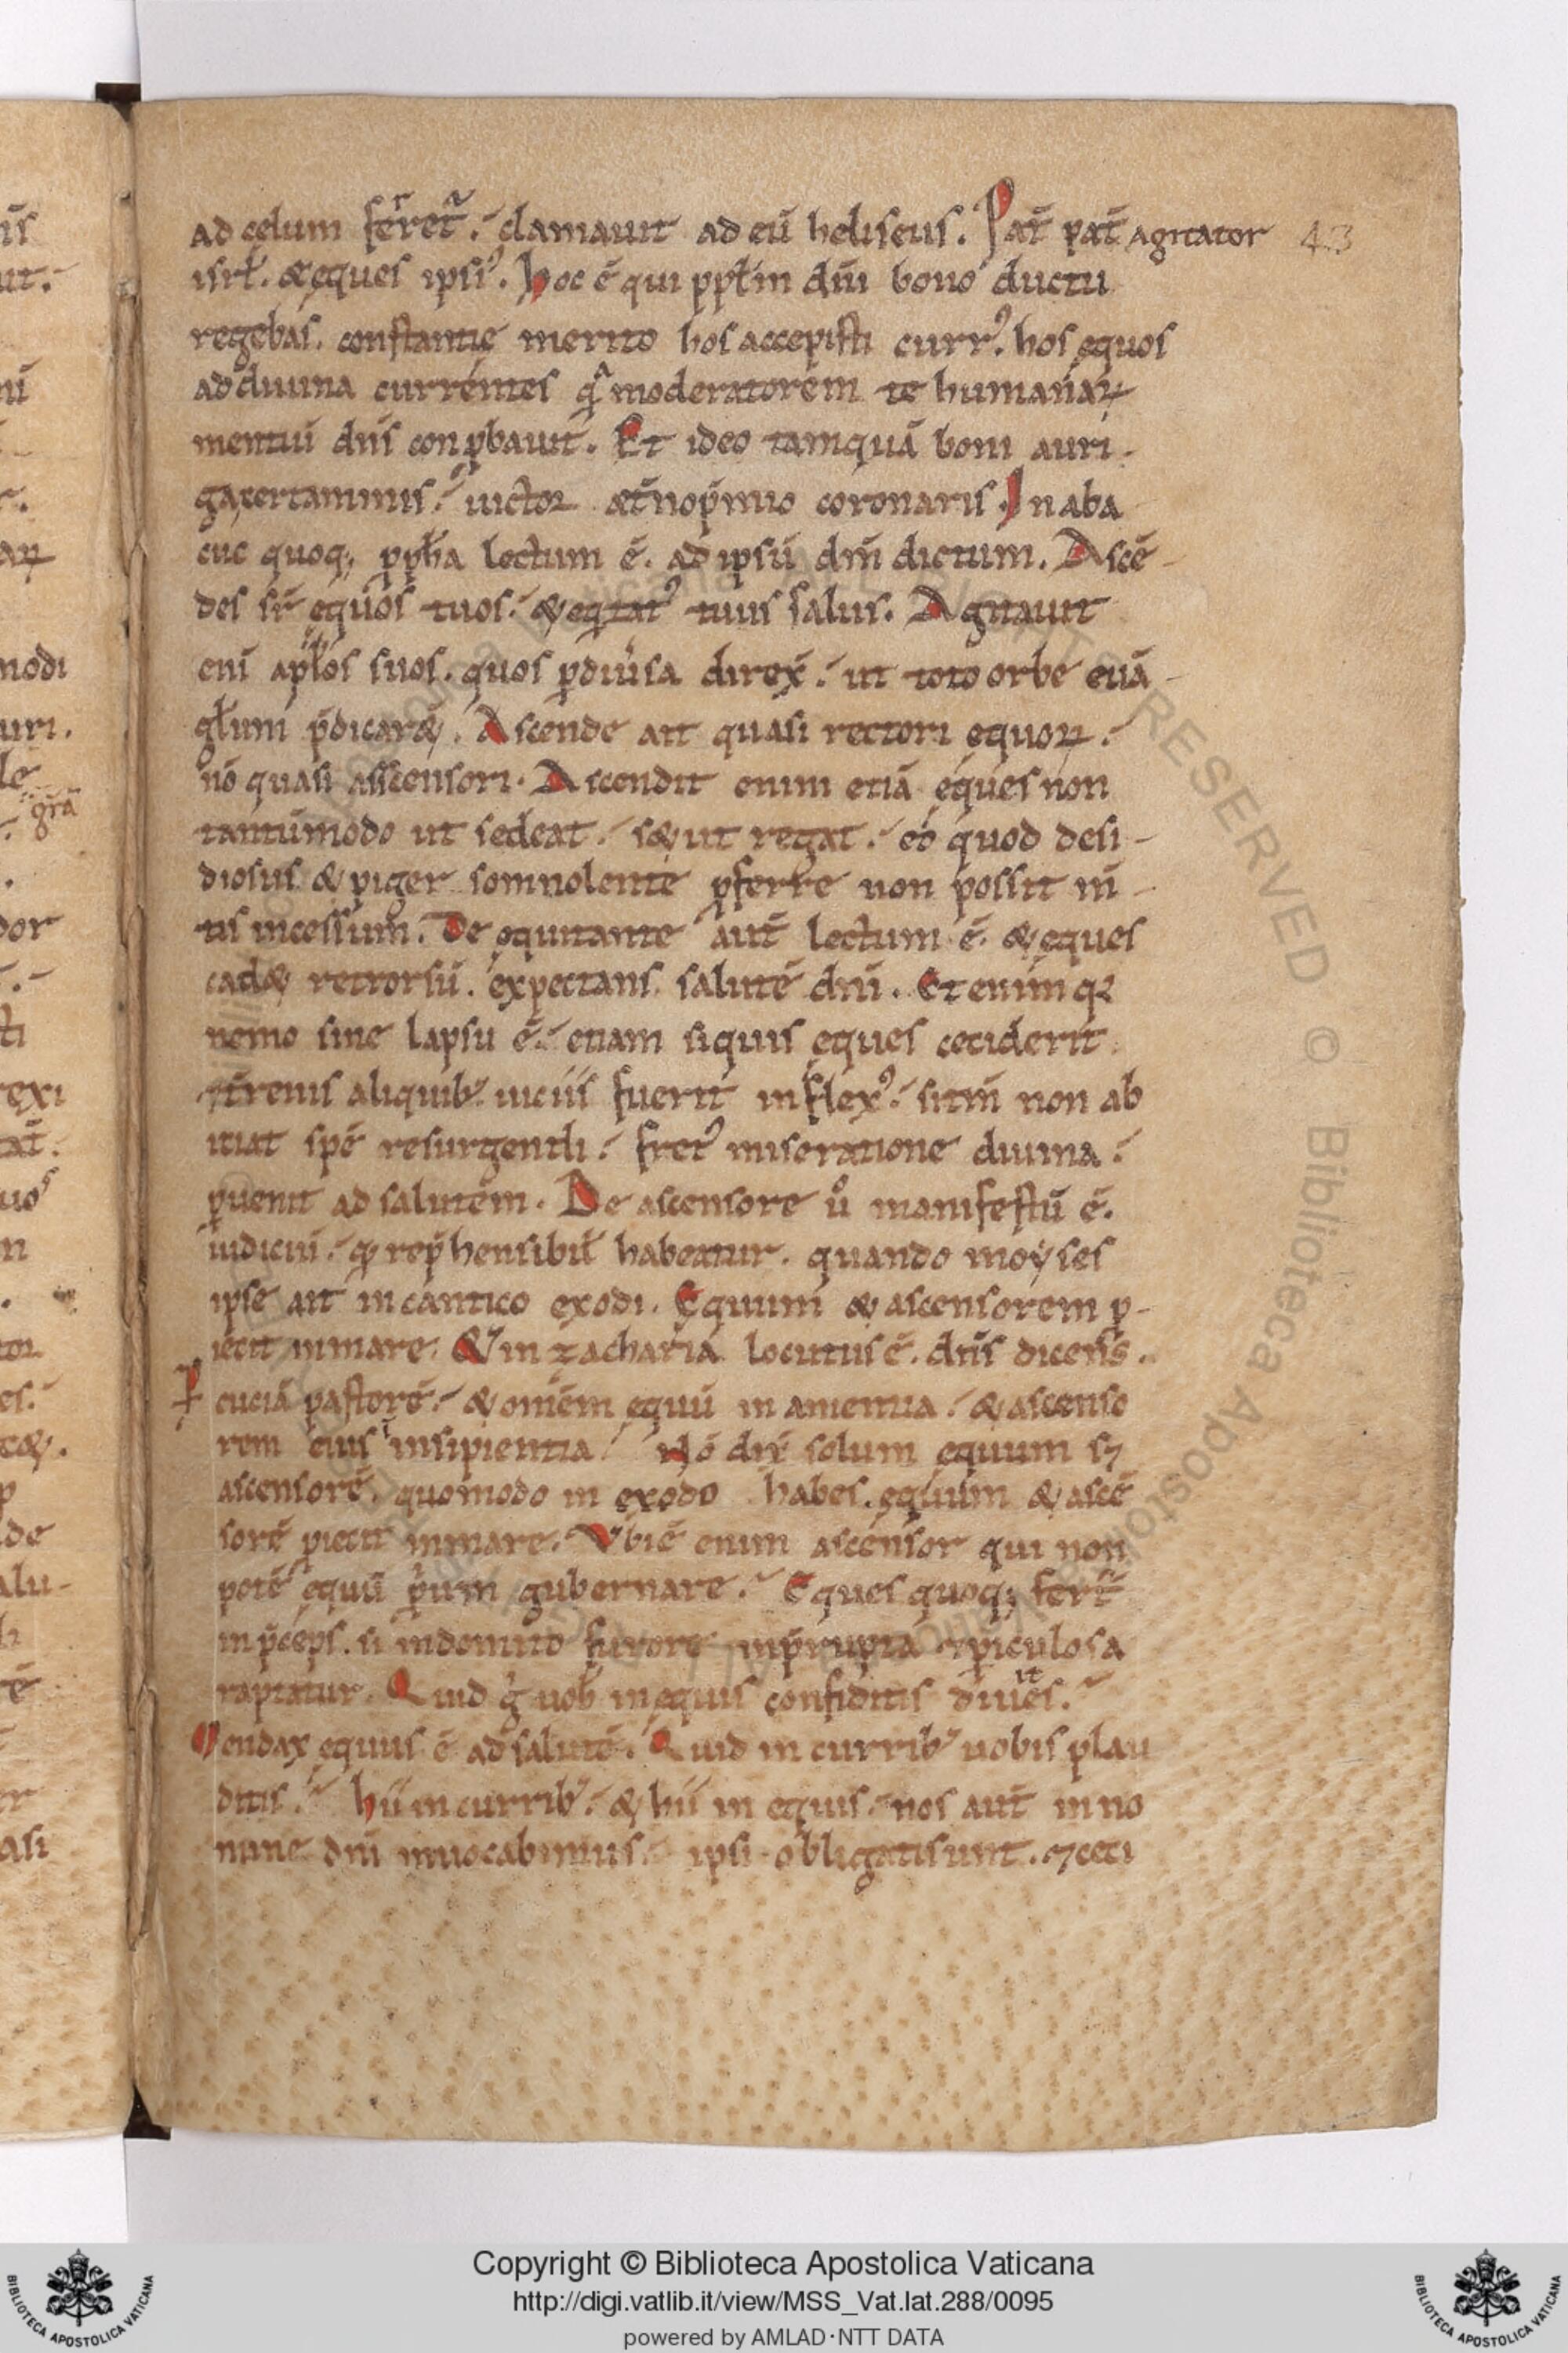 ad celum ferret᷑. clamauit ad eū heliseus. Pat̄ pat̄ agitator 43
isrł. & eques ipsi⁹. hoc ē qui ppłm dn̄i bono ductu
regebas. constantie merito hos accepisti curr⁹. hos equos
ad diuina currentes qͣ moderatorem te humanaꝝ
mentiū dn̄s conꝓbauit. Et ideo tamquā boni auri
ga certaminis. uictor æt̄no p̄mio coronaris. In aba
cuc quoq; ꝓpħa lectum ē. ad ipsū dn̄m dictum. Ascē-
des sr̄ equos tuos. & eqtat⁹ tuus salus. Agitauit
eni apłos suos. quos ꝑ diūsa direx̄. ut toto orbe euā-
głium p̄dicar&. Ascende ait quasi rectori equoꝝ.
nō quasi asscensori. Ascendit enim etiā eques non
tantūmodo ut sedeat. s& ut regat. eo quod desi-
diosus & piger somnolente ꝓferre non possit m̄-
tis incessum. De equitante aut̄ lectum ē. & eques
cad& retrorsū. expectans salutē dn̄i. Et enim qꝛ
nemo sine lapsu ē. etiam si quis eques ceciderit
t̄renis aliquib⁹ uiciis fuerit inflex⁹. si tm̄ non ab
iciat spē resurgendi. fret⁹ miseratione diuina.
ꝑuenit ad salutem. De ascensore ů manifestū ē.
iudiciū. qđ rep̄hensibił habeatur. quando moyses
ipse ait in cantico exodi. Equum & ascensorem ꝓ-
iecit in mare. & in zacharia locutus ē. dn̄s dicens.
P cuciā pastorē. & omēm equū in amentia. & ascenso
rem eius insipientia. Nō dix̄ solum equum sꝫ
ascensorē. quomodo in exodo habes. equum & ascē
sorē ꝓiecit in mare. Vbi ē enim ascensor qui non
potē equū ꝓprium gubernare. Eques quoq; fert᷑
in p̄ceps. si indomito furore in p̄rupta ⁊ ꝑiculosa
raptatur. Quid g̊ uob in equis confiditis diuites.
Mendax equus ē ad salutē. Quid in currib⁹ uobis plau
ditis. hii in currib⁹. & hii in equis. nos aut̄ in no
mine dn̄i inuocabimus. ipsi obligati sunt. ⁊ ceci
Copyright © Biblioteca Apostolica Vaticana
http://digi.vatlib.it/view/MSS_Vat.lat.288/0095
powered by AMLAD·NTT DATA